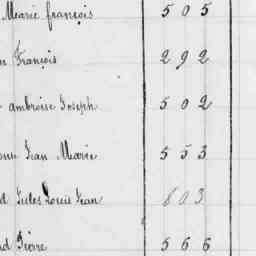 Marie françois 505
n François 292
ambroise Joseph 502
Jean Marie 553
d Jules Louis Jean 603
d Pierre 566